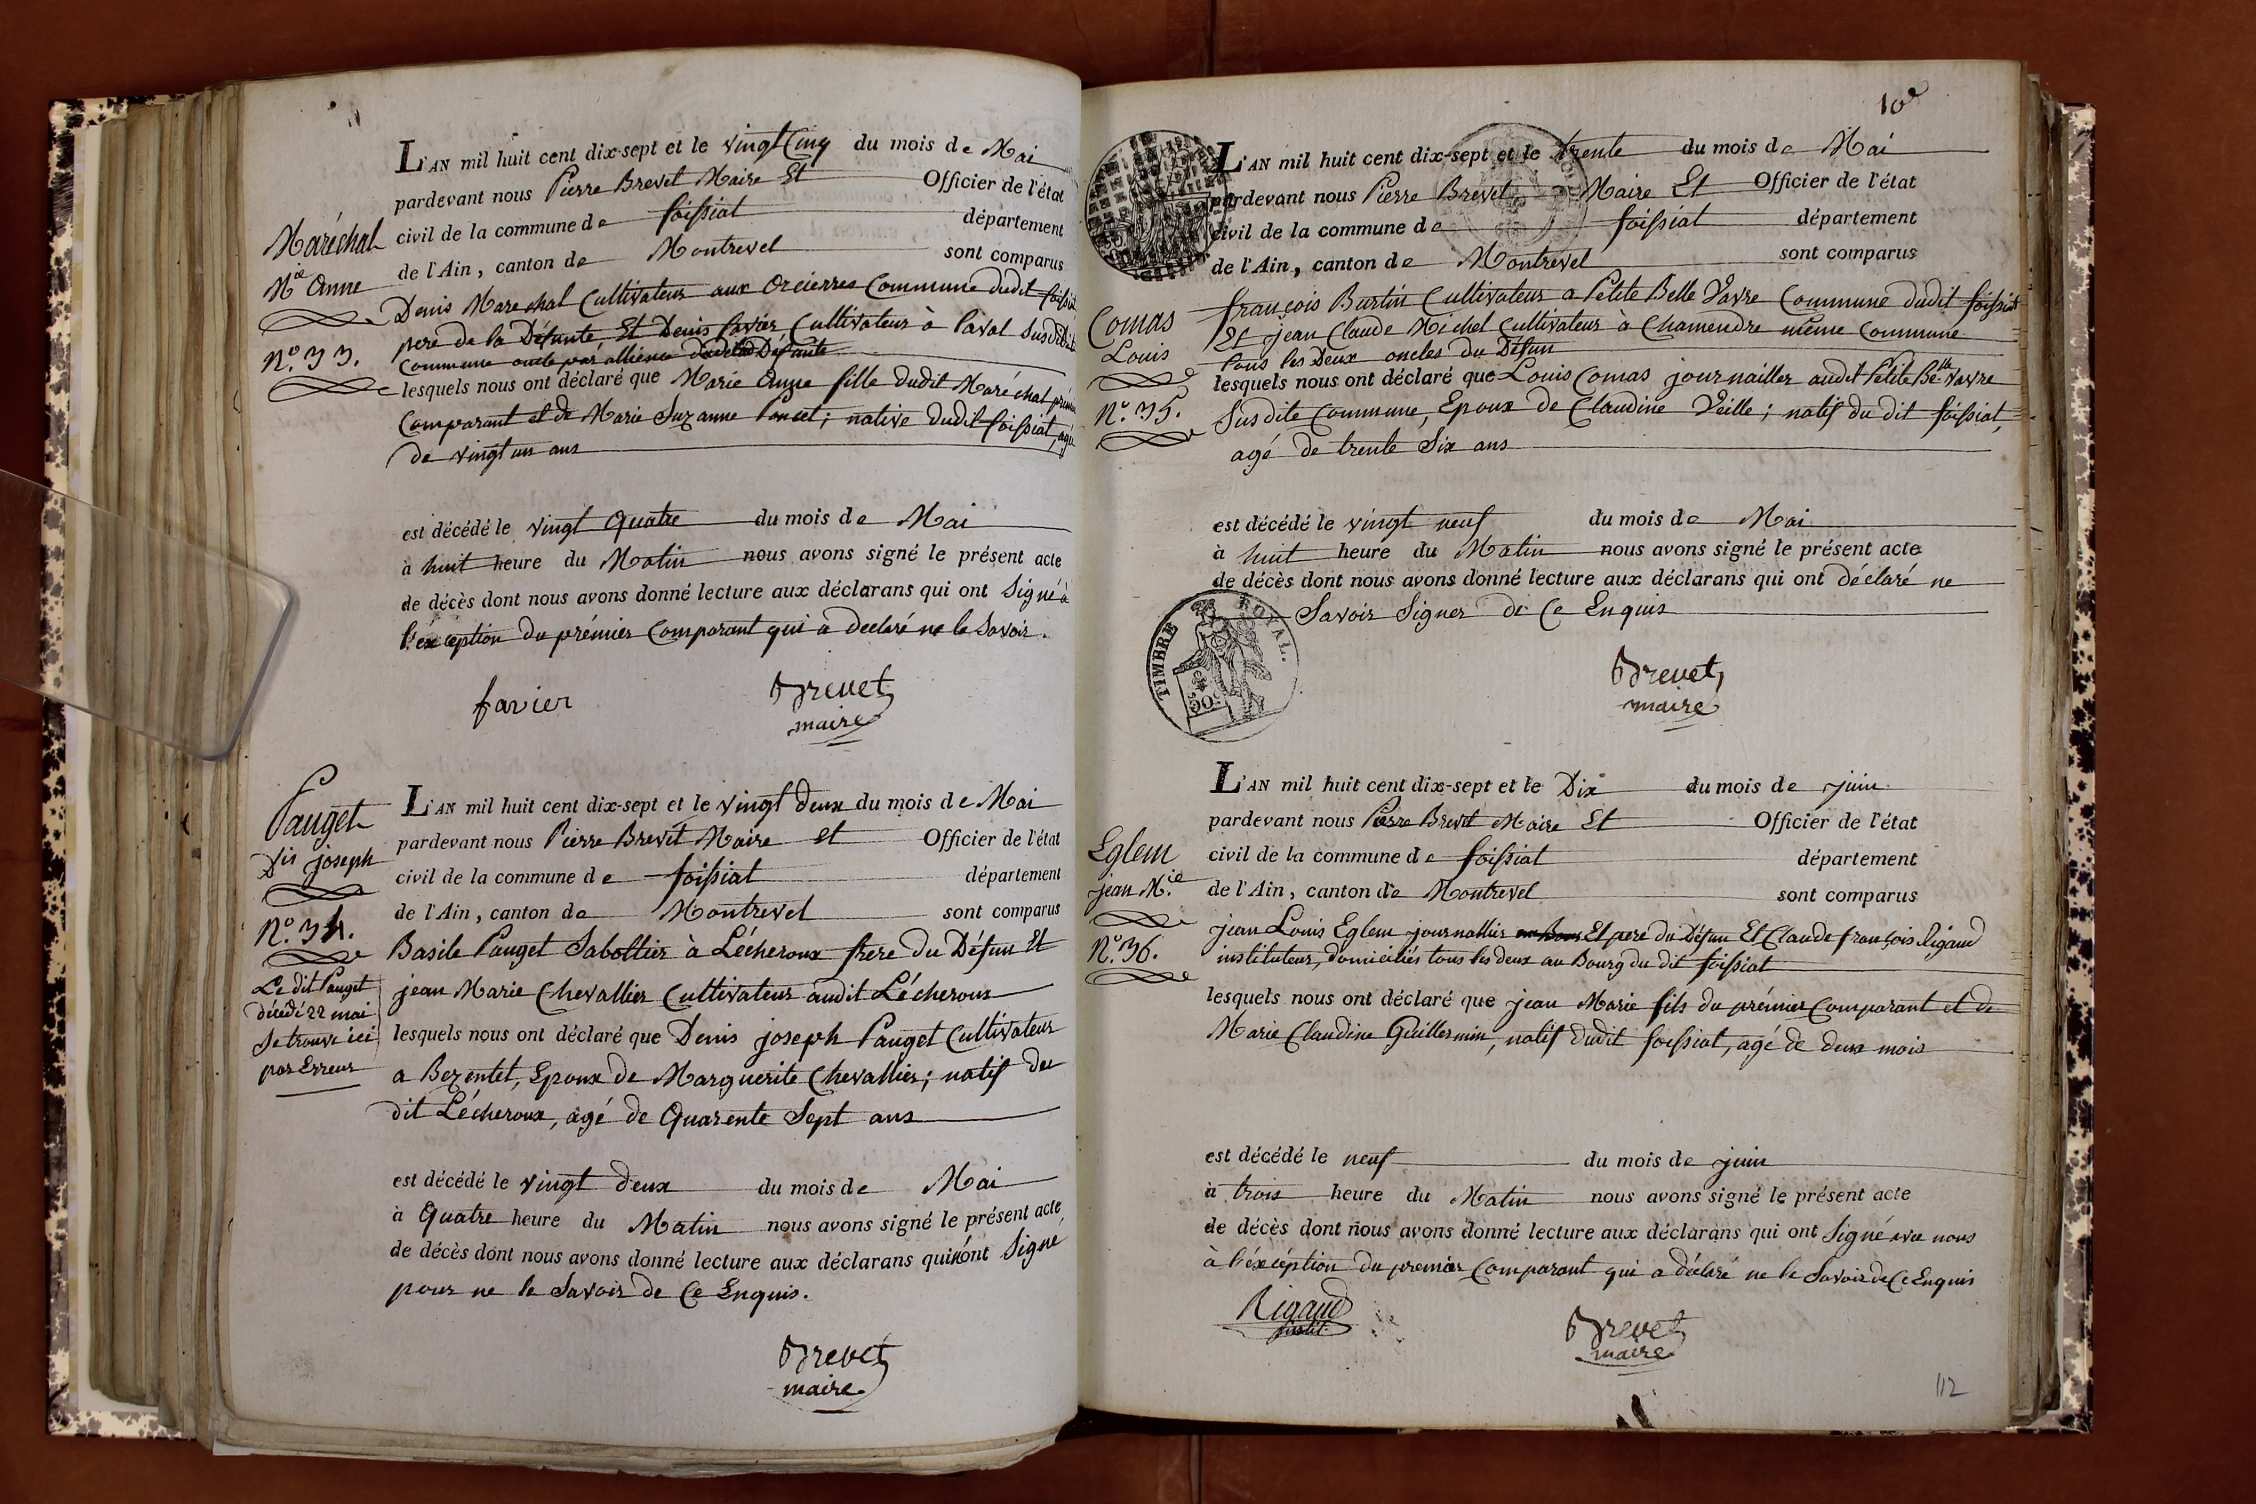 L'AN mil huit cent dix-sept et le vingt Cinq du mois de Mai
pardevant nous Pierre Brevet Maire Et Officier de l'état
civil de la commune de foissiat département
de l'Ain, canton de Montrevel sont comparus
Denis Marechal Cultivateur aux Orcierres Commune dudit foissiat
pere de la Défunte, Et Denis favier Cultivateur à Laval susdite
Commune oncle par alliance Défunte
lesquels nous ont déclaré que Marie Anne fille dudit Maréchal prémier
Comparant et de Marie Suzanne Poncet; native dudit foissiat, agée
de vingt un ans
est décédé le vingt Quatre du mois de Mai
à huit heure du Matin nous avons signé le présent acte
de décès dont nous avons donné lecture aux déclarans qui ont Signé à
l'éxception du prémier Comparant qui à declaré ne le Savoir.
favier Brevet
maire
Maréchal
Mie Anne
N.o 33.
L'AN mil huit cent dix-sept et le vingt deux du mois de Mai
pardevant nous Pierre Brevet Maire et Officier de l'état
civil de la commune de foissiat département
de l'Ain, canton de Montrevel sont comparus
Basile Pauget Sabottier à Lécheroux frere du Défun Et
jean Marie Chevallier Cultivateur audit Lécheroux
lesquels nous ont déclaré que Denis joseph Pauget Cultivateur
a Bezentet, Epoux de Marguerite Chevallier; natif du
dit Lécheroux, agé de Quarente Sept ans
est décédé le vingt deux du mois de Mai
à Quatre heure du Matin nous avons signé le présent acte
de décès dont nous avons donné lecture aux déclarans qui n'ont Signé
pour ne le Savoir de Ce Enquis.
Brevet
maire
Pauget
Dis joseph
N.o 34.
Le dit Pauget
décédé 22 mai
se trouve ici
par Erreur
10e
L'AN mil huit cent dix-sept et le trente du mois de Mai
pardevant nous Pierre Brevet Maire Et Officier de l'état
civil de la commune de foissiat département
de l'Ain, canton de Montrevel sont comparus
françois Burtin Cultivateur a Petite Belle Vavre Commune dudit foissiat
Et jean Claude Michel Cultivateur à Chamendre même Commune
tous les Deux oncles du Défun
lesquels nous ont déclaré que Louis Comas journailler audit Petite Belle Vavre
Susdite Commune, Epoux de Claudine Veille; natif du dit foissiat,
agé de trente Six ans
est décédé le vingt neuf du mois de Mai
à huit heure du Matin nous avons signé le présent acte
de décès dont nous avons donné lecture aux déclarans qui ont déclaré ne
Savoir Signer de Ce Enquis
Brevet
maire
TIMBRE ROYAL.
50c
Comas
Louis
N.o 35.
L'AN mil huit cent dix-sept et le Dix du mois de juin
pardevant nous Pierre Brevet Maire Et Officier de l'état
civil de la commune de foissiat département
de l'Ain, canton de Montrevel sont comparus
jean Louis Eglem journallier Et pere du Défun Et Claude françois Rigaud
instituteur, domiciliés tous les deux au Bourg du dit foissiat
lesquels nous ont déclaré que jean Marie fils du prémier Comparant et de
Marie Claudine Guillermin, natif dudit foissiat, agé de deux mois
est décédé le neuf du mois de juin
à trois heure du Matin nous avons signé le présent acte
de décès dont nous avons donné lecture aux déclarans qui ont Signé avec nous
à l'éxcéption du premier Comparant qui a déclaré ne le Savoir de Ce Enquis
Rigaud Brevet
instit. maire
Eglem
jean M.ie
N.o 36.
112